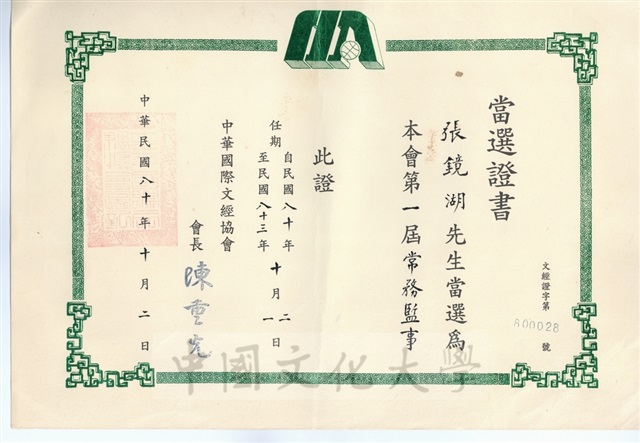 當選證書
文經證字第800028號
張鏡湖先生當選為
本會第一屆常務監事
此證
任期
自民國八十年十月二日
至民國八十三年十月一日
中華國際文經協會
會長 陳重光
中華民國八十年十月二日
中國文化大學